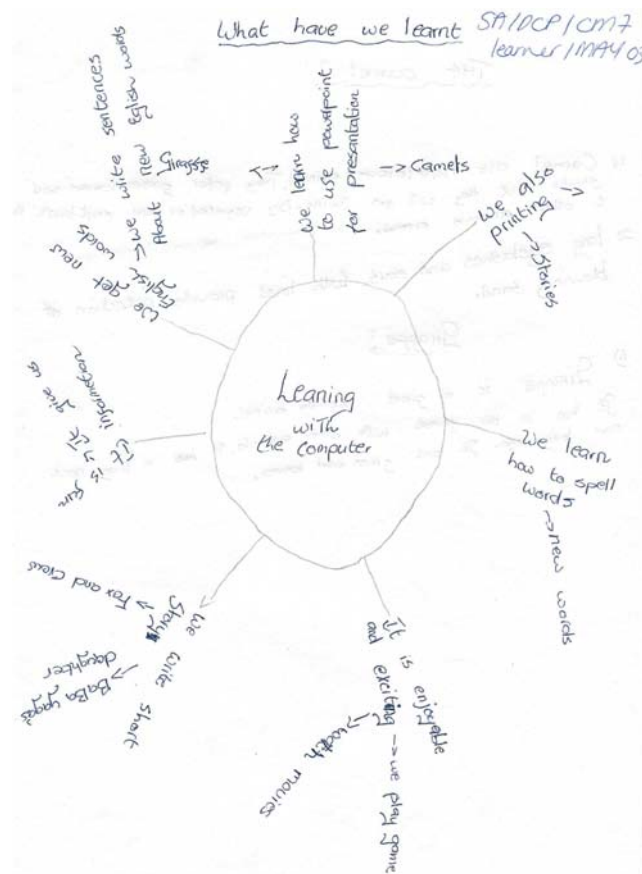 What have we learnt
SA/DCP/CM7
learner/MAY 03
We learn how
to use powerpoint
for presantation
→ Camels
Giraffe
We also
printing →
→ Stories
We learn
how to spell
words
→ new words
It is enjoyable
and exciting → we play game
→ watch movies
We write short
Story
→ Fox and Crow
→ BaBa yaga's
daughter
It is fun
→ It give us
information
We get new
English words
→ we write sentences
About new English words
Leaning
with
the computer